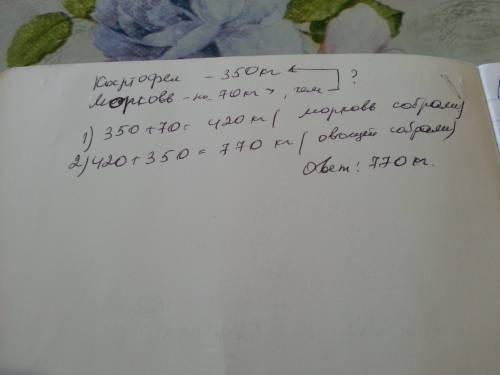 Картофел - 350кг ?
Морковь - на 70кг >, чем
1) 350+70= 420 кг ( морковь собрали)
2) 420+350 = 770 кг ( овощей собрали)
Ответ: 770 кг.